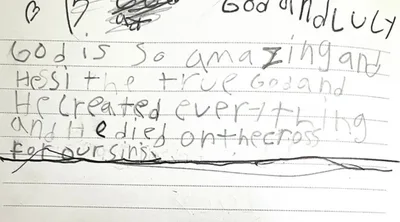 God and LULY
God is so amazing and
Hessi the true God and
He created everything
and He died on the cross
for our sins